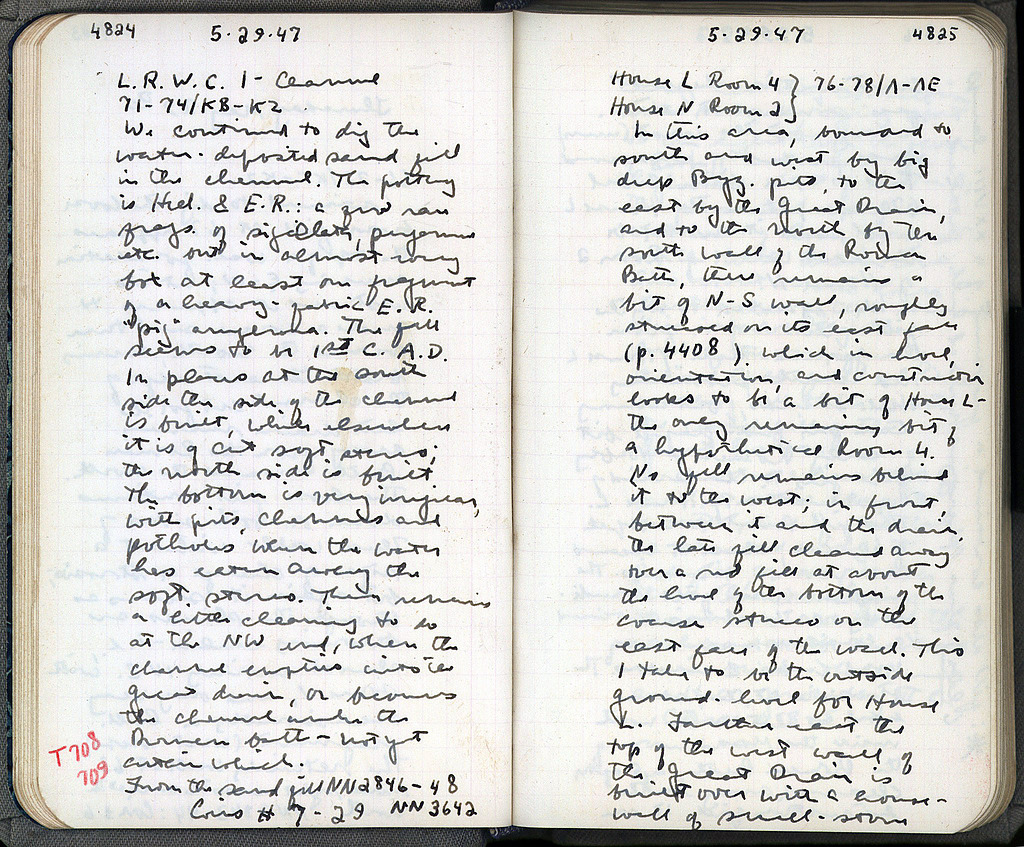 4824 5-29-47
L.R.W.C. 1 - Channel
71-74/ΚΒ-ΚΖ
We continued to dig the
water-deposited sand fill
in the channel. The pottery
is Hel. & E.R.: a few rare
frags. of sigillata, pergamene
etc. but in almost every
box at least one fragment
of a heavy-fabric E.R.
"pig" amphora. The fill
seems to be 1st C. A.D.
In places at the south
side the side of the channel
is built, while elsewhere
it is of cut soft stereo;
the north side is built.
The bottom is very irregular,
with pits, channels and
potholes, where the water
has eaten away the
soft stereo. There remains
a little cleaning to do
at the NW end, where the
channel empties into the
great drain, or becomes
the channel under the
Roman bath - not yet
certain which.
T 708
709
From the sand fill NN 2846-48
Coins # 7-29 NN 3642
5-29-47 4825
House L Room 4 } 76-78/Λ-ΛΕ
House N Room 2 }
In this area, bounded to
south and west by big
deep Byz. pits, to the
east by the Great Drain,
and to the north by the
south wall of the Roman
Bath, there remains a
bit of N-S wall, roughly
stuccoed on its east face
(p. 4408), which in level,
orientation, and construction
looks to be a bit of House L -
the only remaining bit of
a hypothetical Room 4.
No fill remains behind
it to the west; in front,
between it and the drain,
the late fill cleared away
over a red fill at about
the level of the bottom of the
coarse stucco on the
east face of the wall. This
I take to be the outside
ground-level for House
L. Farther east the
top of the west wall of
the Great Drain is
built over with a house-
wall of small-stone